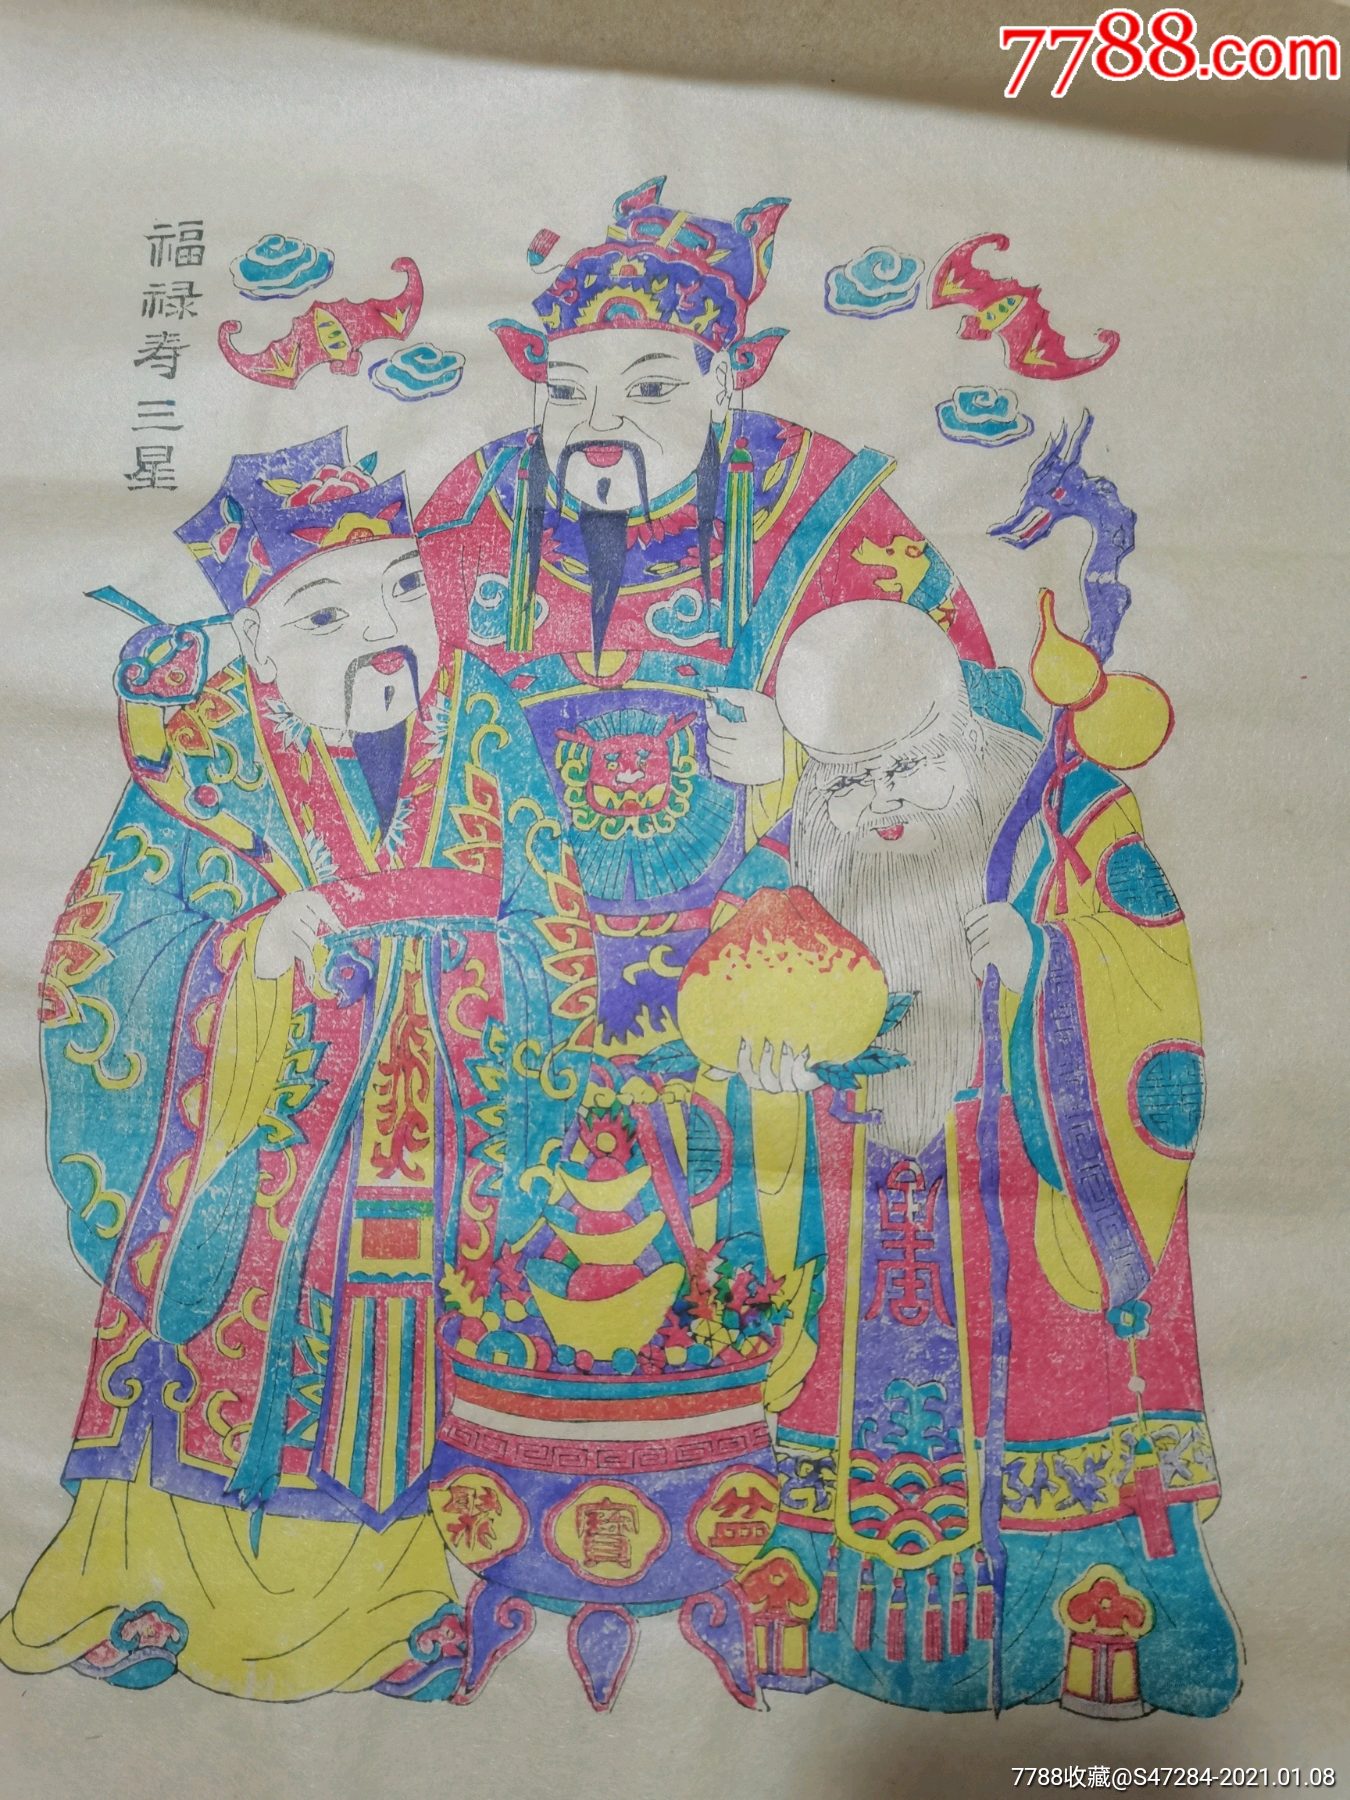 7788.com
福禄寿三星
壽
聚寶盆
7788收藏@S47284-2021.01.08